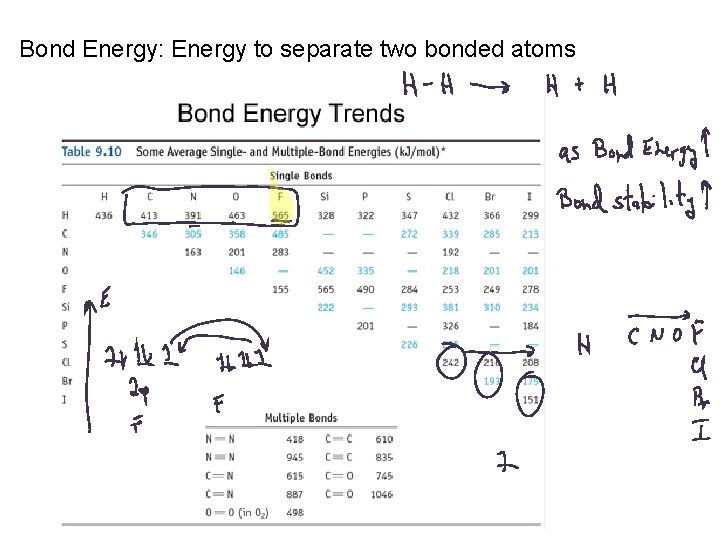 Bond Energy: Energy to separate two bonded atoms
H-H → H + H
Bond Energy Trends
as Bond Energy ↑
Bond stability ↑
Table 9.10 Some Average Single- and Multiple-Bond Energies (kJ/mol)*
Single Bonds
H C N O F Si P S Cl Br I
H 436 413 391 463 565 328 322 347 432 366 299
C 346 305 358 485 — — 272 339 285 213
N 163 201 283 — — — 192 — —
O 146 — 452 335 — 218 201 201
F 155 565 490 284 253 249 278
Si 222 — 293 381 310 234
P 201 — 326 — 184
S 226 — —
Cl 242 216 208
Br 193 175
I 151
E
2p
F
F
H
C N O F
Cl
Br
I
Multiple Bonds
N=N 418 C=C 610
N=N 945 C=C 835
C=N 615 C=O 745
C=N 887 C=O 1046
O=O (in O₂) 498